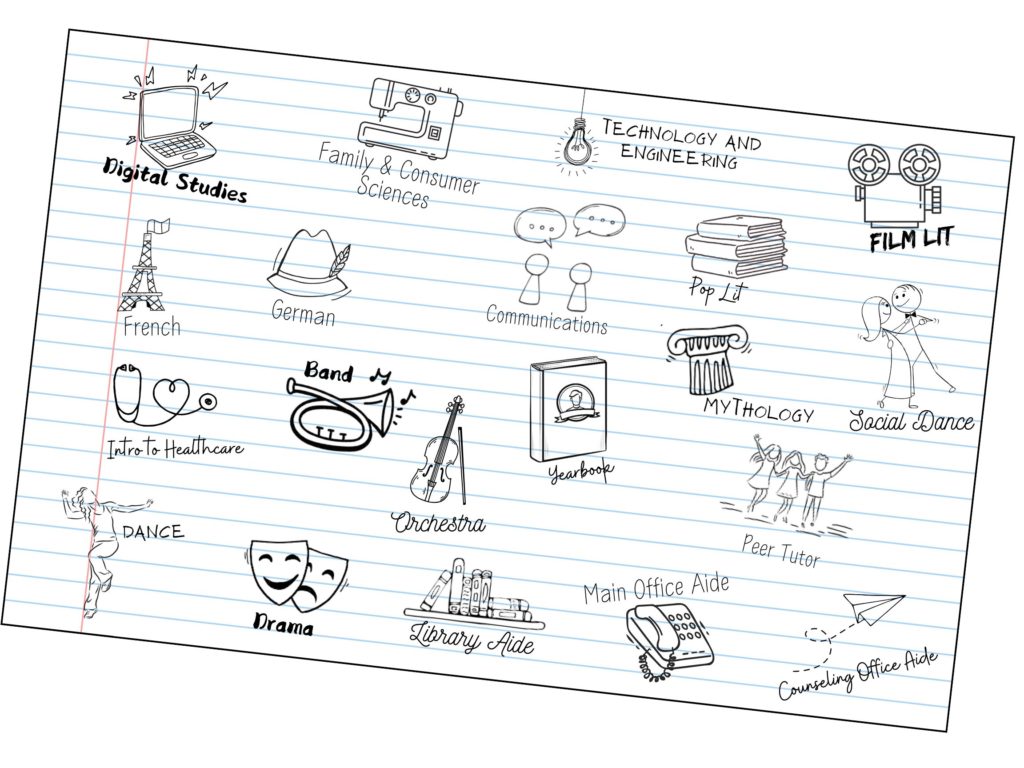 Digital Studies
Family & Consumer
Sciences
TECHNOLOGY AND
ENGINEERING
FILM LIT
French
German
Communications
Pop Lit
MYTHOLOGY
Social Dance
Intro to Healthcare
Band
Orchestra
Yearbook
Peer Tutor
DANCE
Drama
Library Aide
Main Office Aide
Counseling Office Aide